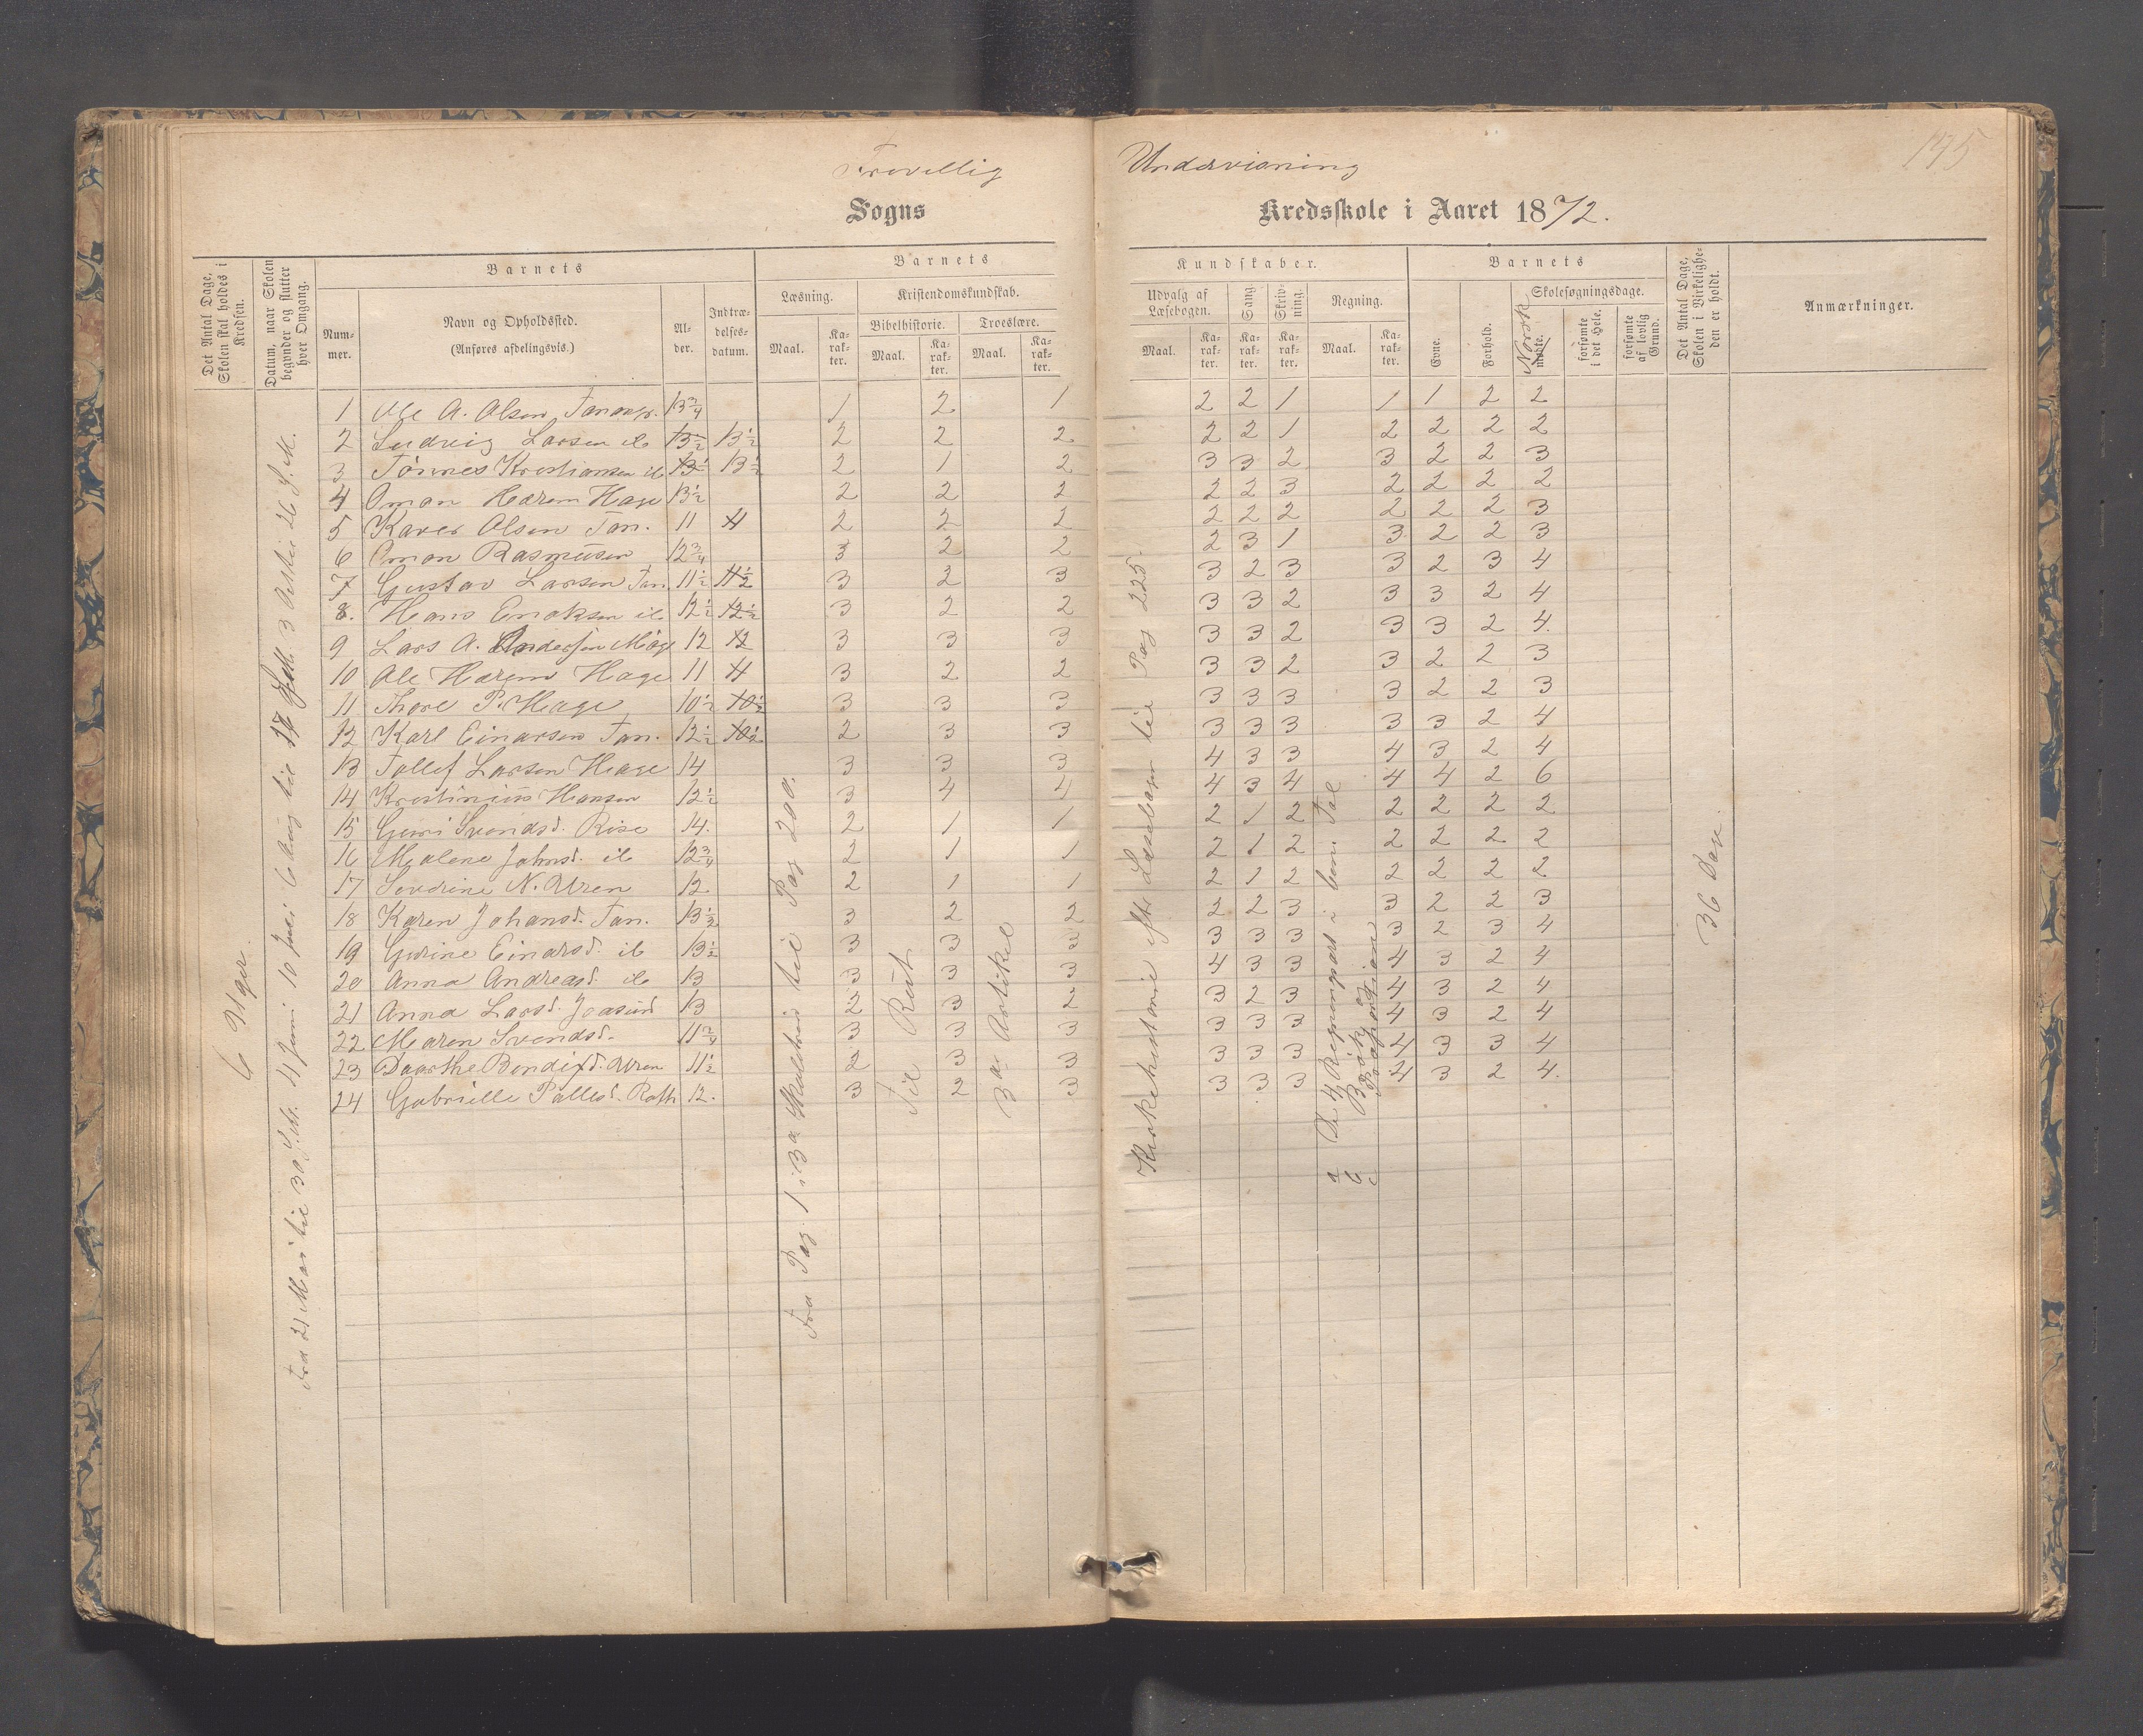 Frivillig Undervisning
145
Sogns Kredsskole i Aaret 1872.
Det Antal Dage, Skolen skal holdes i Kredsen.
Datum, naar Skolen begynder og slutter hver Omgang.
Barnets
Barnets
Kundskaber.
Barnets
Det Antal Dage, Skolen i Virkeligheden er holdt.
Anmærkninger.
Nummer.
Navn og Opholdssted.
(Anføres afdelingsvis.)
Alder.
Indtrædelsesdatum.
Læsning.
Kristendomskundskab.
Bibelhistorie.
Troeslære.
Maal.
Karakter.
Maal.
Karakter.
Maal.
Karakter.
Udvalg af Læsebogen.
Sang.
Skrivning.
Regning.
Maal.
Karakter.
Karakter.
Karakter.
Maal.
Karakter.
Evne.
Forhold.
Skolesøgningsdage.
Norsk
mødte.
forsømte i det Hele.
forsømte af lovlig Grund.
6 Uger.
Fra Pag. 1 i 3a Skoletrin til Pag 200.
Til Rut
3a Artikel
Kirkehistorie efter Læsebogen til Pag 225.
36 Dage.
1 Ole A. Olsen Tanangr. 13 3/4 1 2 1 2 2 1 1 1 2 2
2 Ludvig Larsen ib 13 1/2 13 1/2 2 2 2 2 2 1 2 2 2 2
3 Tönnes Kristiansen ib 13 1/2 13 1/2 2 1 2 3 3 2 3 2 2 3
4 Oman Harem Hage 13 1/2 2 2 2 2 2 3 2 2 2 2
5 Karen Olsen Tan. 11 11 2 2 2 2 2 2 2 2 2 3
6 Oman Rasmusen 12 3/4 3 2 2 2 3 1 3 2 2 3
7 Gustav Larsen Tan. 11 1/2 11 1/2 3 2 3 3 2 3 3 2 3 4
8. Hans Enoksen ib. 12 1/2 12 1/2 3 2 2 3 3 2 3 3 2 4
9 Lars A. Andersen 12 12 3 3 3 3 3 2 3 3 2 4.
10 Ole Harem Hage 11 11 3 2 2 3 3 2 3 2 2 3
11 Thore P. Hage 10 1/2 10 1/2 3 3 3 3 3 3 3 2 2 3
12 Karl Einarsen Tan. 12 1/2 10 1/2 2 3 3 3 3 3 3 3 2 4
13 Tollef Larsen Hage 14 3 3 3 4 3 3 4 3 2 4
14 Kristinius Hansen 12 1/2 3 4 4 4 3 4 4 4 2 6
15 Guri Svendsd. Rise 14. 2 1 1 2 1 2 2 2 2 2
16 Malene Johnsd. ib 12 3/4 2 1 1 2 1 2 2 2 2 2
17 Sevrine N. Uren 12 2 1 1 2 1 2 2 2 2 2
18 Karen Johansd. Tan. 13 1/2 3 2 2 2 2 3 3 2 2 3
19 Gurine Einarsd. ib 13 1/2 3 3 3 3 3 3 3 2 3 4
20 Anna Andreasd. ib 13 3 3 3 4 3 3 4 3 2 4
21 Anna Larsd. Joasund 13 2 3 2 3 2 3 4 3 2 4
22 Maren Svendsd. 11 3/4 3 3 3 3 3 3 4 3 2 4
23 Daarthe Bendixd. Uren 11 1/2 2 3 3 3 3 3 4 3 3 4
24 Gabrielle Pallesd. Roth 12. 3 2 3 3 3 3 4 3 2 4.